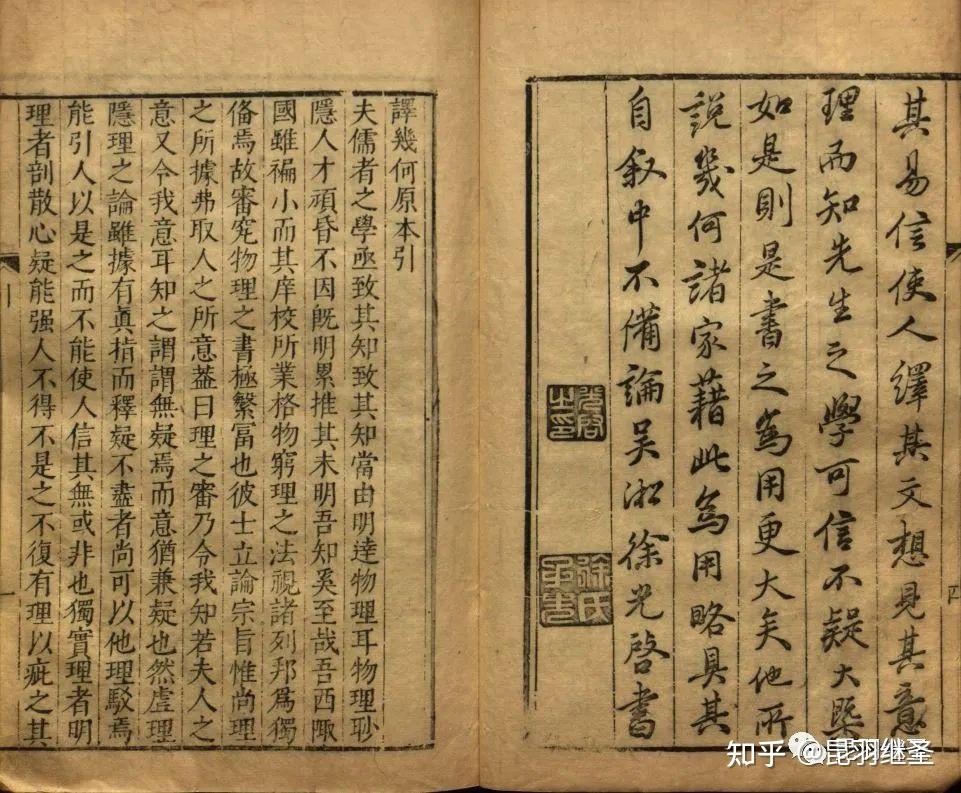 其易信使人繹其文想見其意
理而知先生之學可信不疑大槩
如是則是書之為用更大矣他所
說幾何諸家藉此為用略具其
自叙中不備論吳淞徐光啓書
光啓之印
徐氏子先
譯幾何原本引
夫儒者之學亟致其知致其知當由明達物理耳物理眇
隱人才頑昏不因既明累推其未明吾知奚至哉吾西陬
國雖褊小而其庠校所業格物窮理之法視諸列邦為獨
備焉故審究物理之書極繁富也彼士立論宗旨惟尚理
之所據弗取人之所意葢曰理之審乃令我知若夫人之
意又令我意耳知之謂謂無疑焉而意猶兼疑也然虛理
隱理之論雖據有眞指而釋疑不盡者尚可以他理駁焉
能引人以是之而不能使人信其無或非也獨實理者明
理者剖散心疑能强人不得不是之不復有理以疵之其
引
一
四
知乎 @昆羽继圣